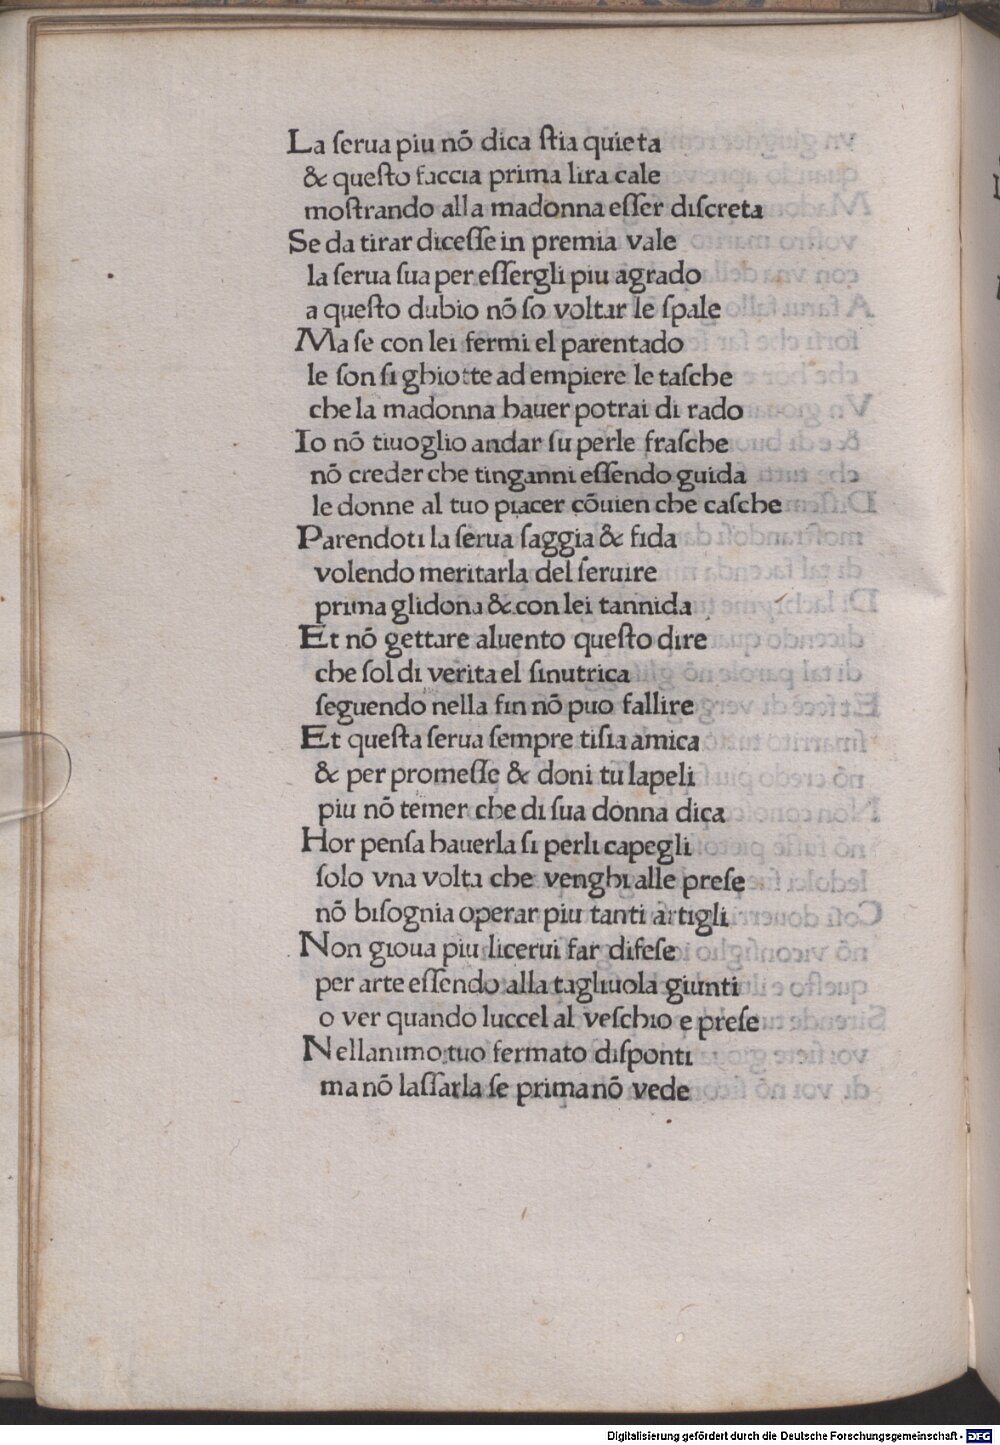 La ſerua piu nō dica ſtia quieta
& queſto faccia prima lira cale
moſtrando alla madonna eſſer diſcreta
Se da tirar diceſſe in premia vale
la ſerua ſua per eſſergli piu agrado
a queſto dubio nō ſo voltar le ſpale
Ma ſe con lei fermi el parentado
le ſon ſi ghiotte ad empiere le taſche
che la madonna hauer potrai di rado
Io nō tiuoglio andar ſu perle fraſche
nō creder che tinganni eſſendo guida
le donne al tuo piacer cōuien che caſche
Parendoti la ſerua ſaggia & fida
volendo meritarla del ſeruire
prima glidona & con lei tannida
Et nō gettare aluento queſto dire
che ſol di verita el ſinutrica
ſeguendo nella fin nō puo fallire
Et queſta ſerua ſempre tiſia amica
& per promeſſe & doni tu lapeli
piu nō temer che di ſua donna dica
Hor penſa hauerla ſi perli capegli
ſolo vna volta che venghi alle preſe
nō biſognia operar piu tanti artigli
Non gioua piu licerui far difeſe
per arte eſſendo alla tagliuola giunti
o ver quando luccel al veſchio e preſe
Nellanimo tuo fermato diſponti
ma nō laſſarla ſe prima nō vede
Digitalisierung gefördert durch die Deutsche Forschungsgemeinschaft - DFG